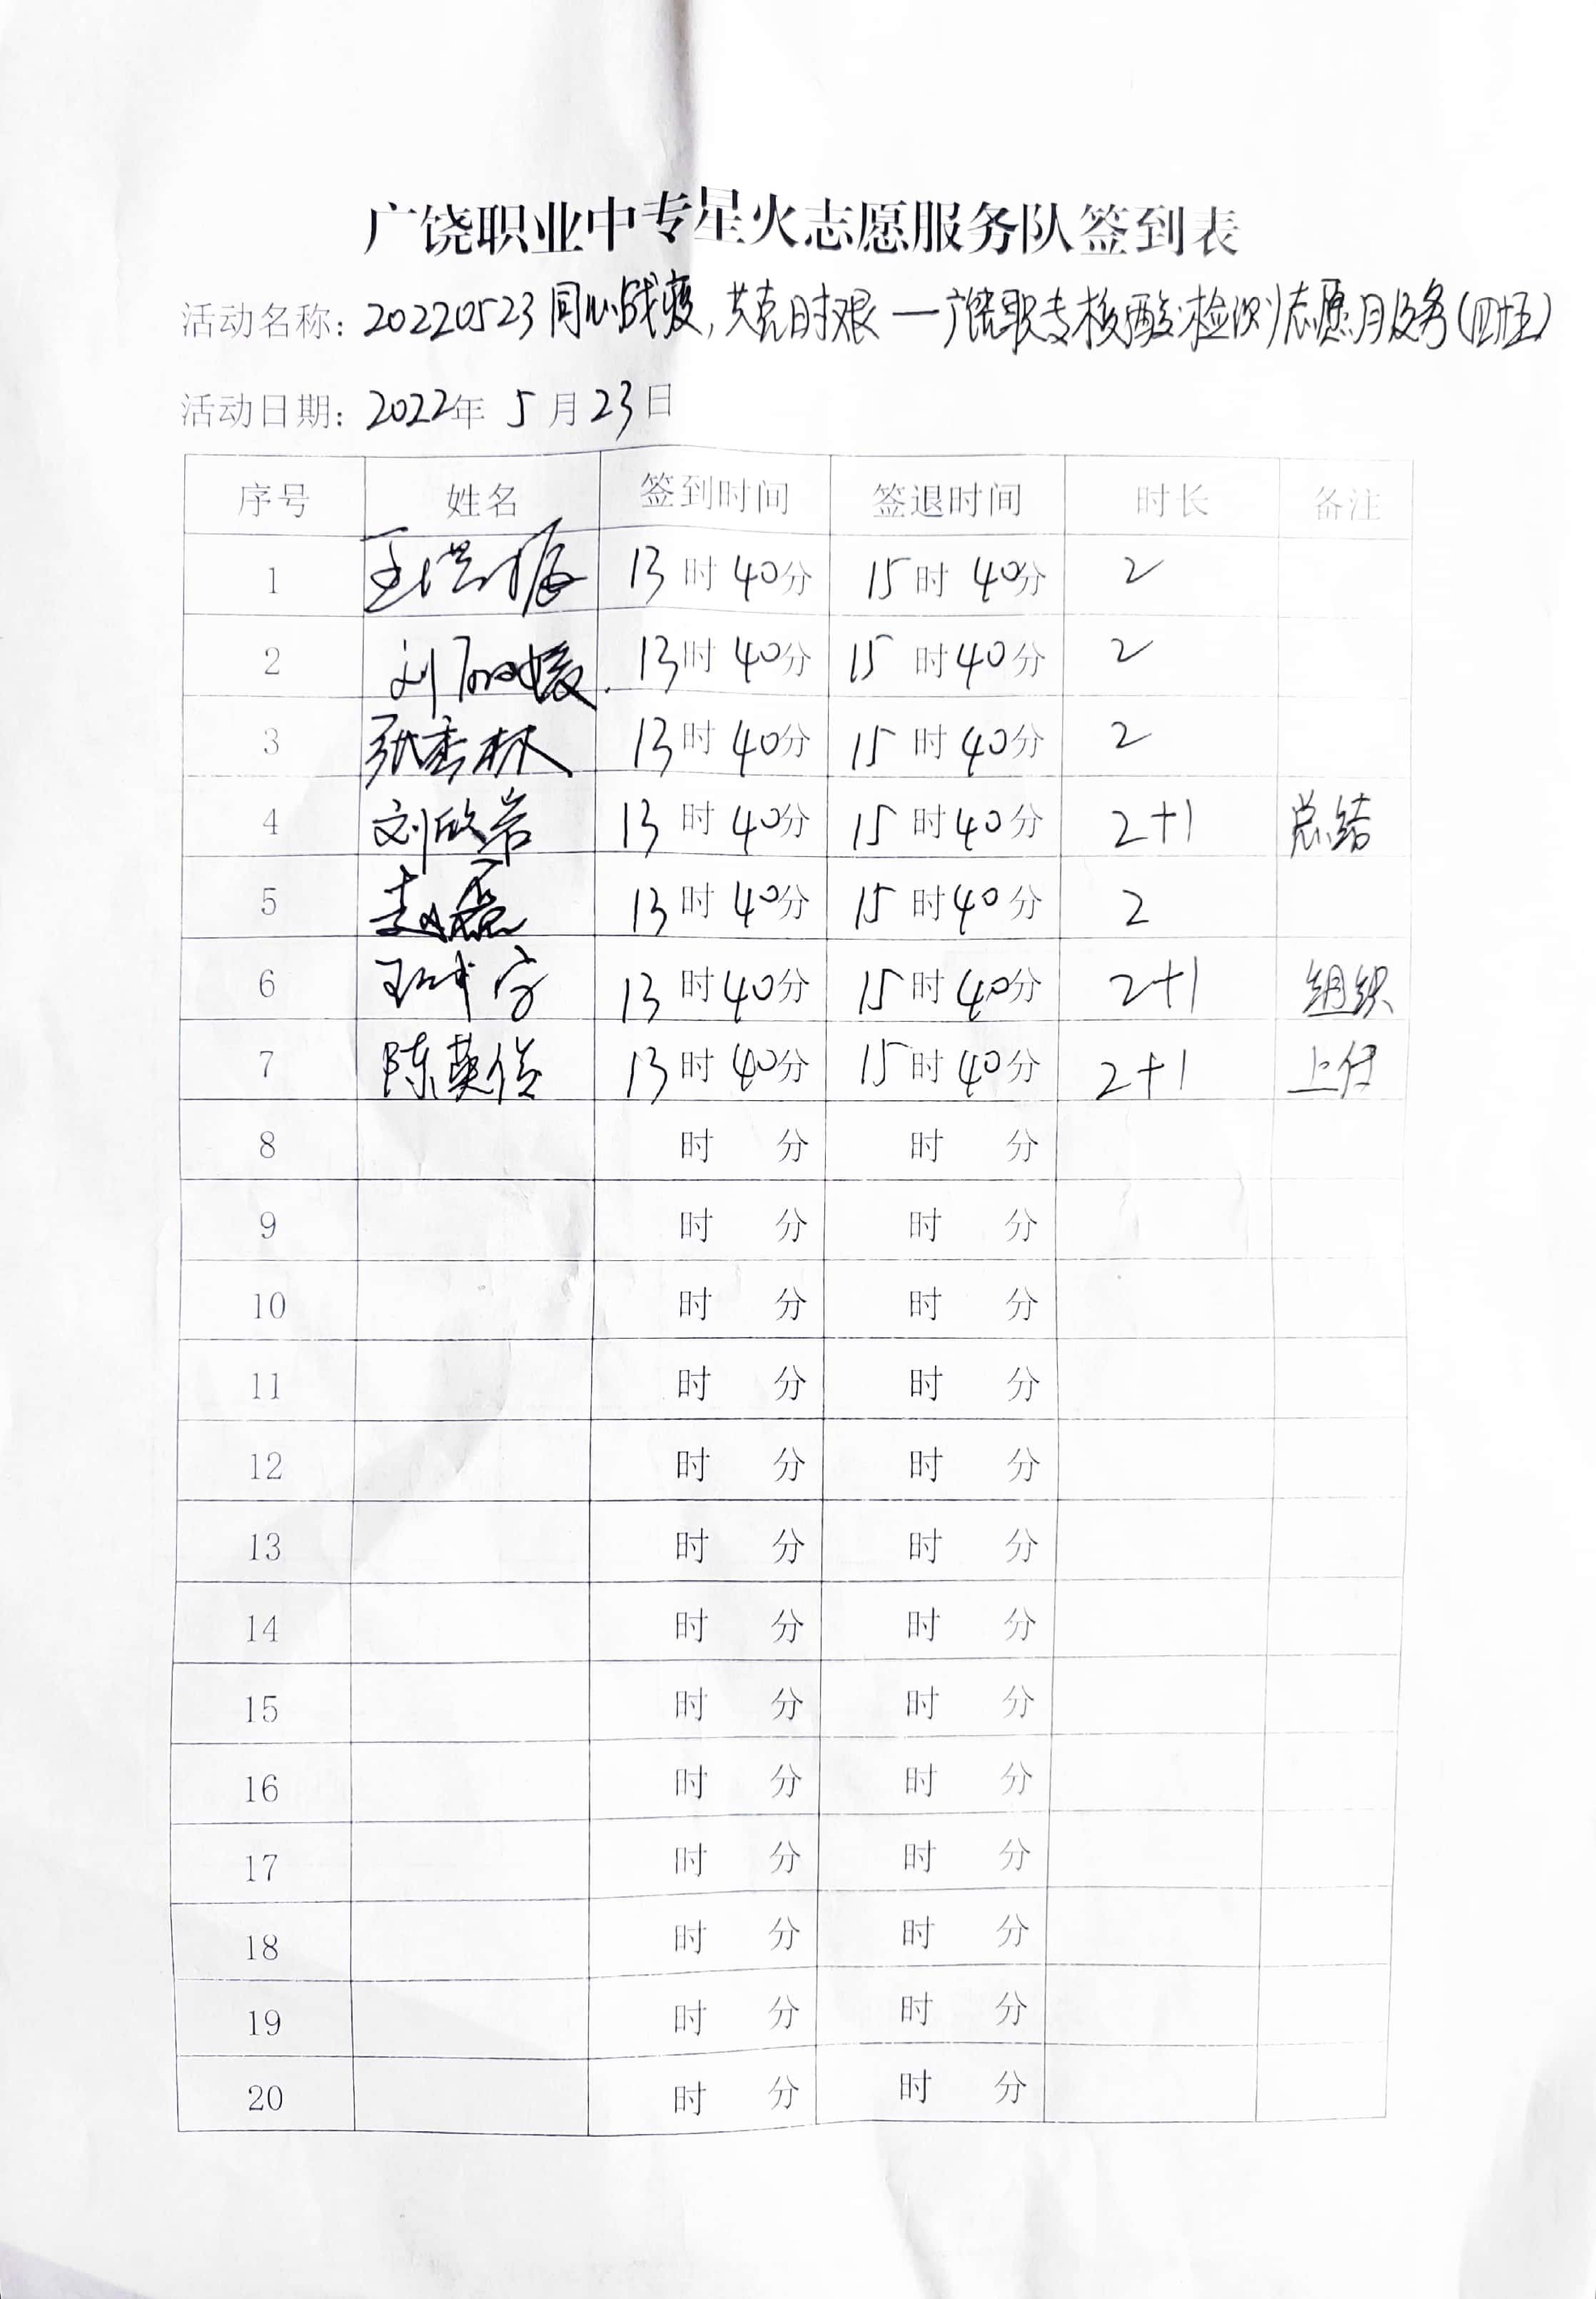 广饶职业中专星火志愿服务队签到表
活动名称: 20220523同心战疫,共克时艰—广饶职专核酸检测志愿服务(四十五)
活动日期: 2022年 5月23日
序号 姓名 签到时间 签退时间 时长 备注
1 王洪振 13时40分 15时40分 2
2 刘丽媛 13时40分 15时40分 2
3 张秀林 13时40分 15时40分 2
4 刘欣岩 13时40分 15时40分 2+1 总结
5 李磊 13时40分 15时40分 2
6 13时40分 15时40分 2+1 组织
7 陈英俊 13时40分 15时40分 2+1 上传
8 时 分 时 分
9 时 分 时 分
10 时 分 时 分
11 时 分 时 分
12 时 分 时 分
13 时 分 时 分
14 时 分 时 分
15 时 分 时 分
16 时 分 时 分
17 时 分 时 分
18 时 分 时 分
19 时 分 时 分
20 时 分 时 分